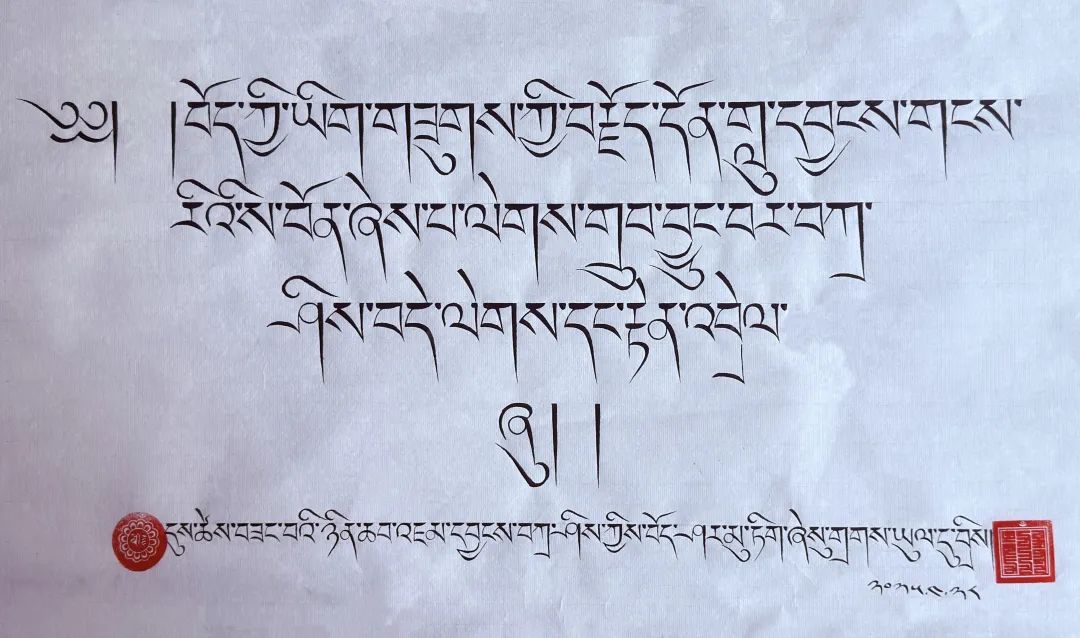 ༄༅། །བོད་ཀྱི་ཡིག་གཟུགས་ཀྱི་བརྗོད་དོན་གླུ་དབྱངས་གངས་
རིའི་སི་བོན་ཞེས་པ་ལེགས་གྲུབ་བྱུང་བར་བཀྲ་
ཤིས་བདེ་ལེགས་དང་རྟེན་འབྲེལ་
ཞུ། །
དུས་ཚེས་བཟང་བའི་ཉིན་ཆབ་འཇམ་དབྱངས་བཀྲ་ཤིས་ཀྱིས་བོད་ཤར་མུ་ཏིག་ཞེསུ་གྲགས་ཡུལ་དུ་བྲིས།
༢༠༢༥.༩.༢༨